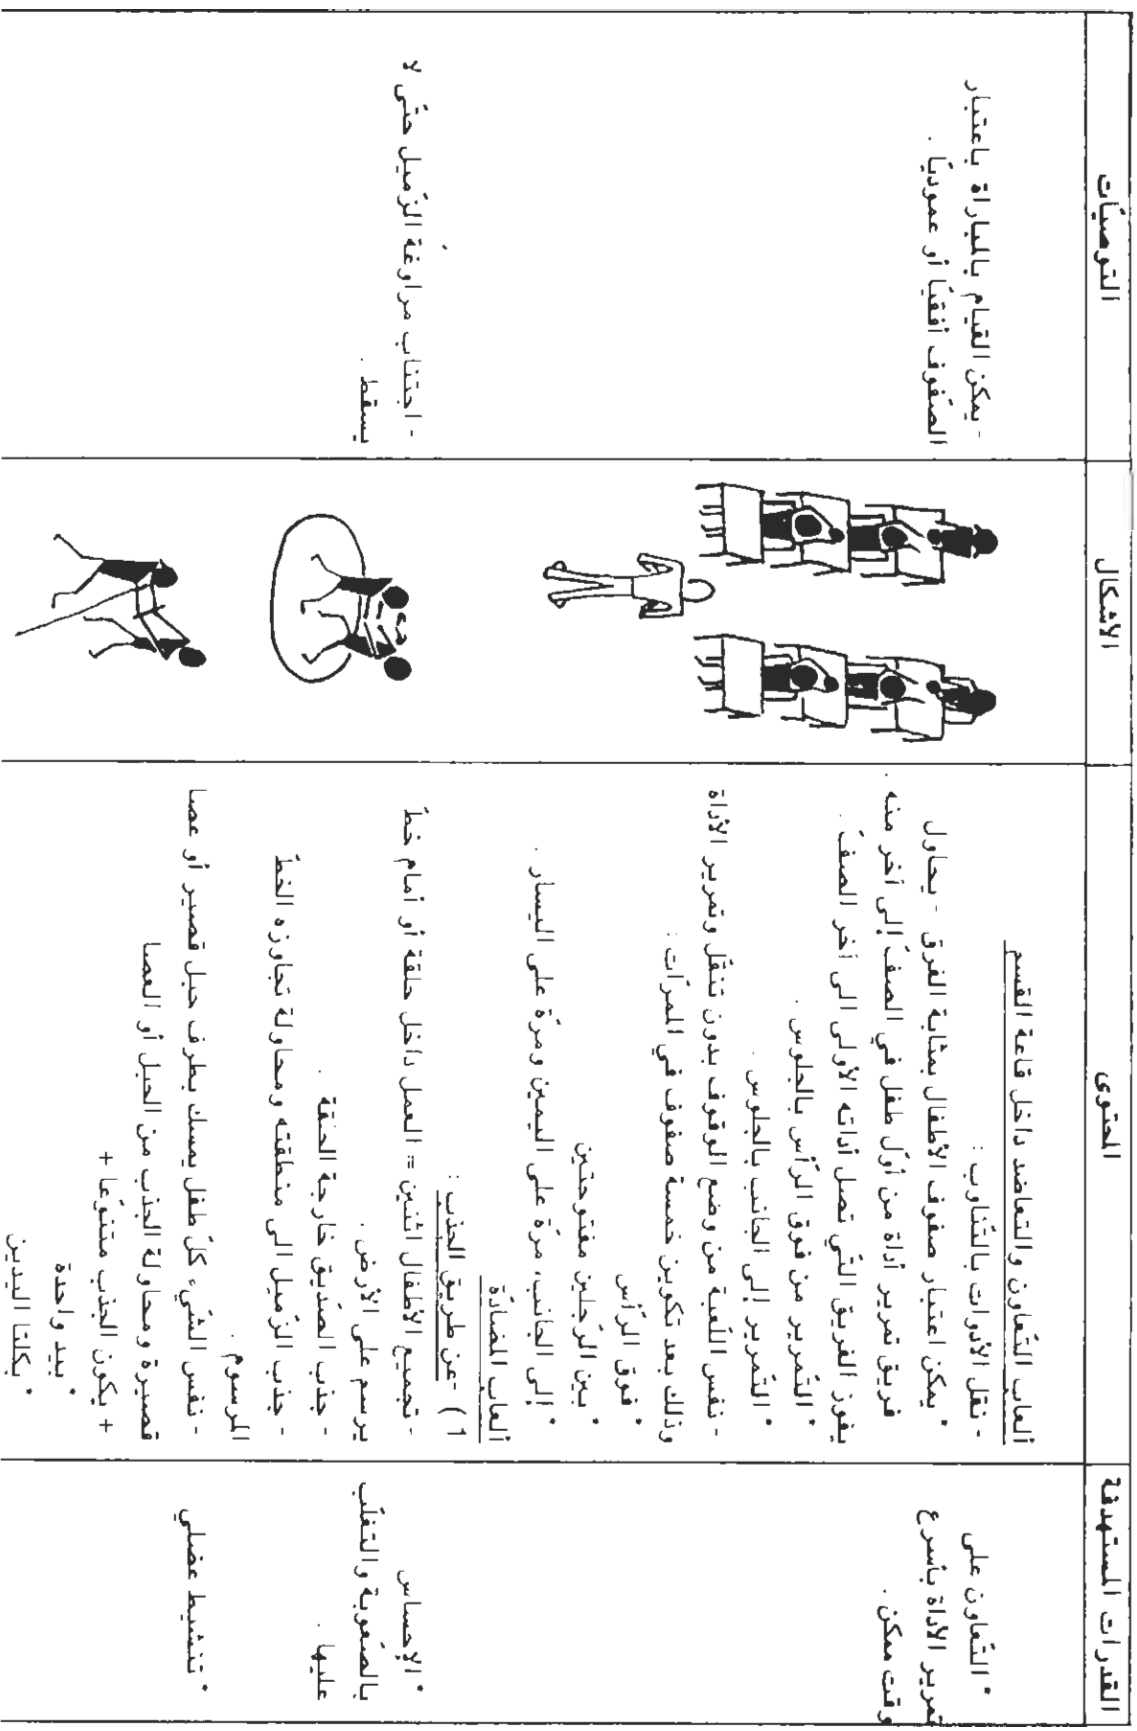 القدرات المستهدفة
المحتوى
الأشكال
التوصيات
* التّعاون على
تمرير الأداة بأسرع
وقت ممكن .
* الإحساس
بالصّعوبة والتغلّب
عليها .
* تنشيط عضلي
ألعاب التّعاون والتعاضد داخل قاعة القسم
- نقل الأدوات بالتّناوب :
* يمكن اعتبار صفوف الأطفال بمثابة الفرق - يحاول
فريق تمرير أداة من أوّل طفل في الصفّ إلى آخر منه .
يفوز الفريق التّي تصل أداته الأولى الى آخر الصفّ .
* التّمرير من فوق الرّأس بالجلوس .
* التّمرير إلى الجانب بالجلوس .
- نفس اللّعبة من وضع الوقوف بدون تنقّل وتمرير الأداة
وذلك بعد تكوين خمسة صفوف في الممرّات :
* فوق الرّأس
* بين الرّجلين مفتوحتين
* إلى الجانب، مرّة على اليمين ومرّة على اليسار .
ألعاب المضادّة
1) -عن طريق الجذب :
- تجميع الأطفال اثنين = العمل داخل حلقة أو أمام خطّ
يرسم على الأرض .
- جذب الصّديق خارجة الحلقة .
- جذب الزّميل الى منطقته ومحاولة تجاوزه الخطّ
المرسوم .
- نفس الشّيء، كلّ طفل يمسك بطرف حبل قصير أو عصا
قصيرة ومحاولة الجذب من الحبل أو العصا
+ يكون الجذب متنوّعا +
* بيد واحدة
* بكلتا اليدين
- يمكن القيام بالمباراة باعتبار
الصّفوف أفقيّا أو عموديّا .
- اجتناب مراوغة الزّميل حتّى لا
يسقط .